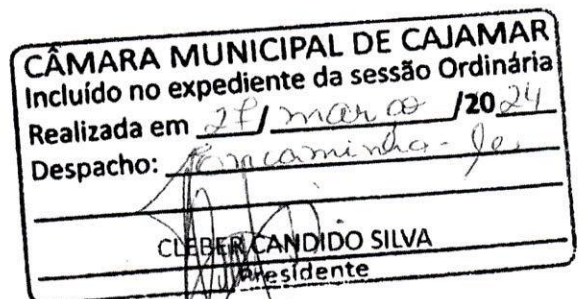 CÂMARA MUNICIPAL DE CAJAMAR
Incluído no expediente da sessão Ordinária
Realizada em 27/ março /20 24
Despacho: Encaminha-se
CLEBER CANDIDO SILVA
Presidente